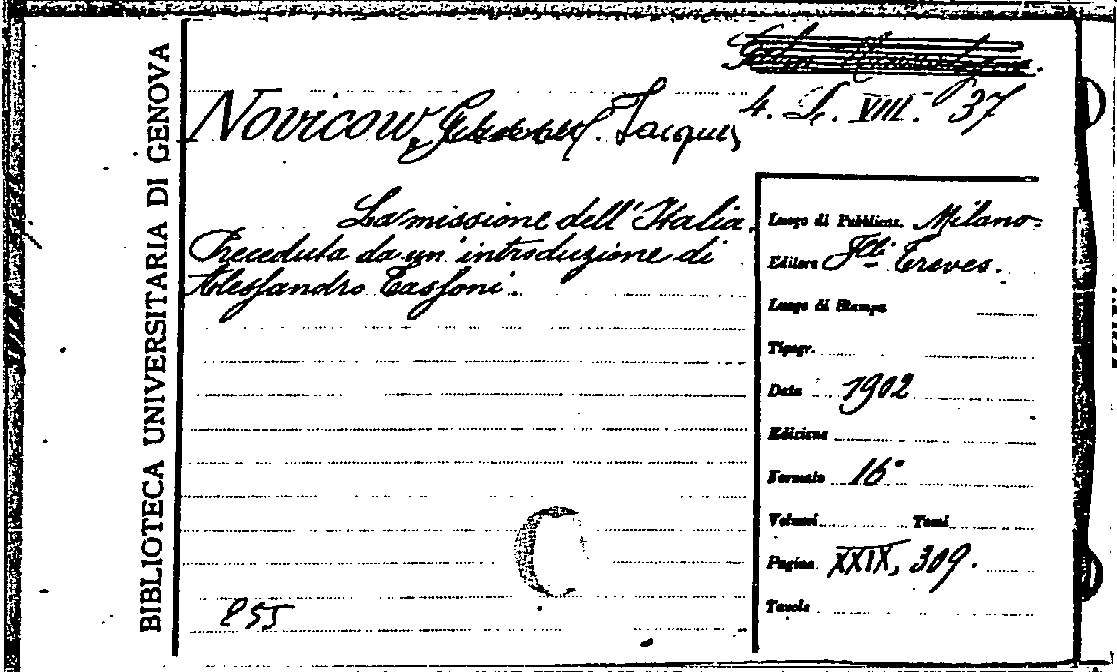 BIBLIOTECA UNIVERSITARIA DI GENOVA
4. L. VIII. 37
Novicow, Jacques
La missione dell'Italia.
Preceduta da un'introduzione di
Alessandro Tassoni.
255
Luogo di Pubblicaz. Milano
Editore F.lli Treves.
Luogo di Stampa
Tipogr.
Data 1902
Edizione
Formato 16°
Volumi Tomi
Pagine XXIX, 309.
Tavole